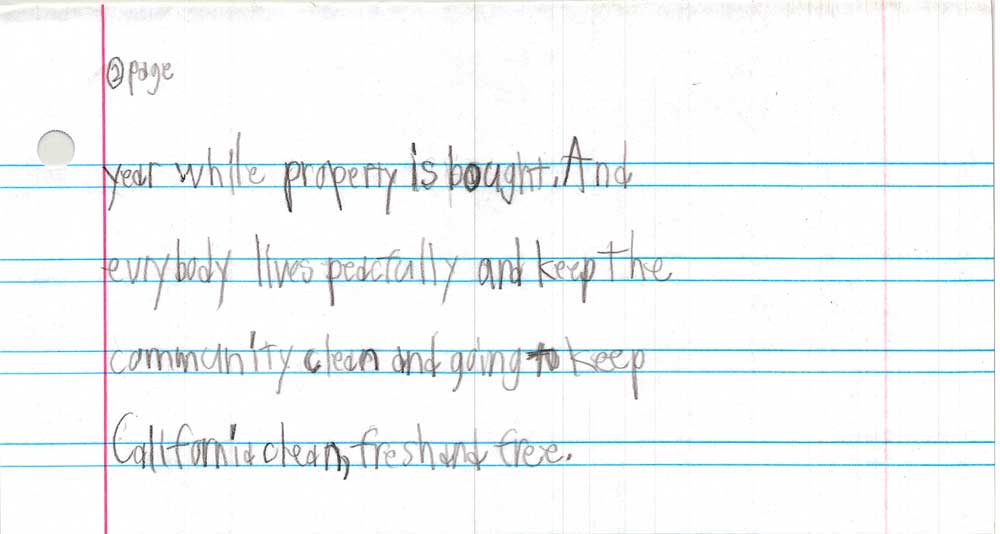 ② page
year while property is bought. And
evrybody lives peacfully and keep the
community clean and going to keep
California clean, fresh and free.